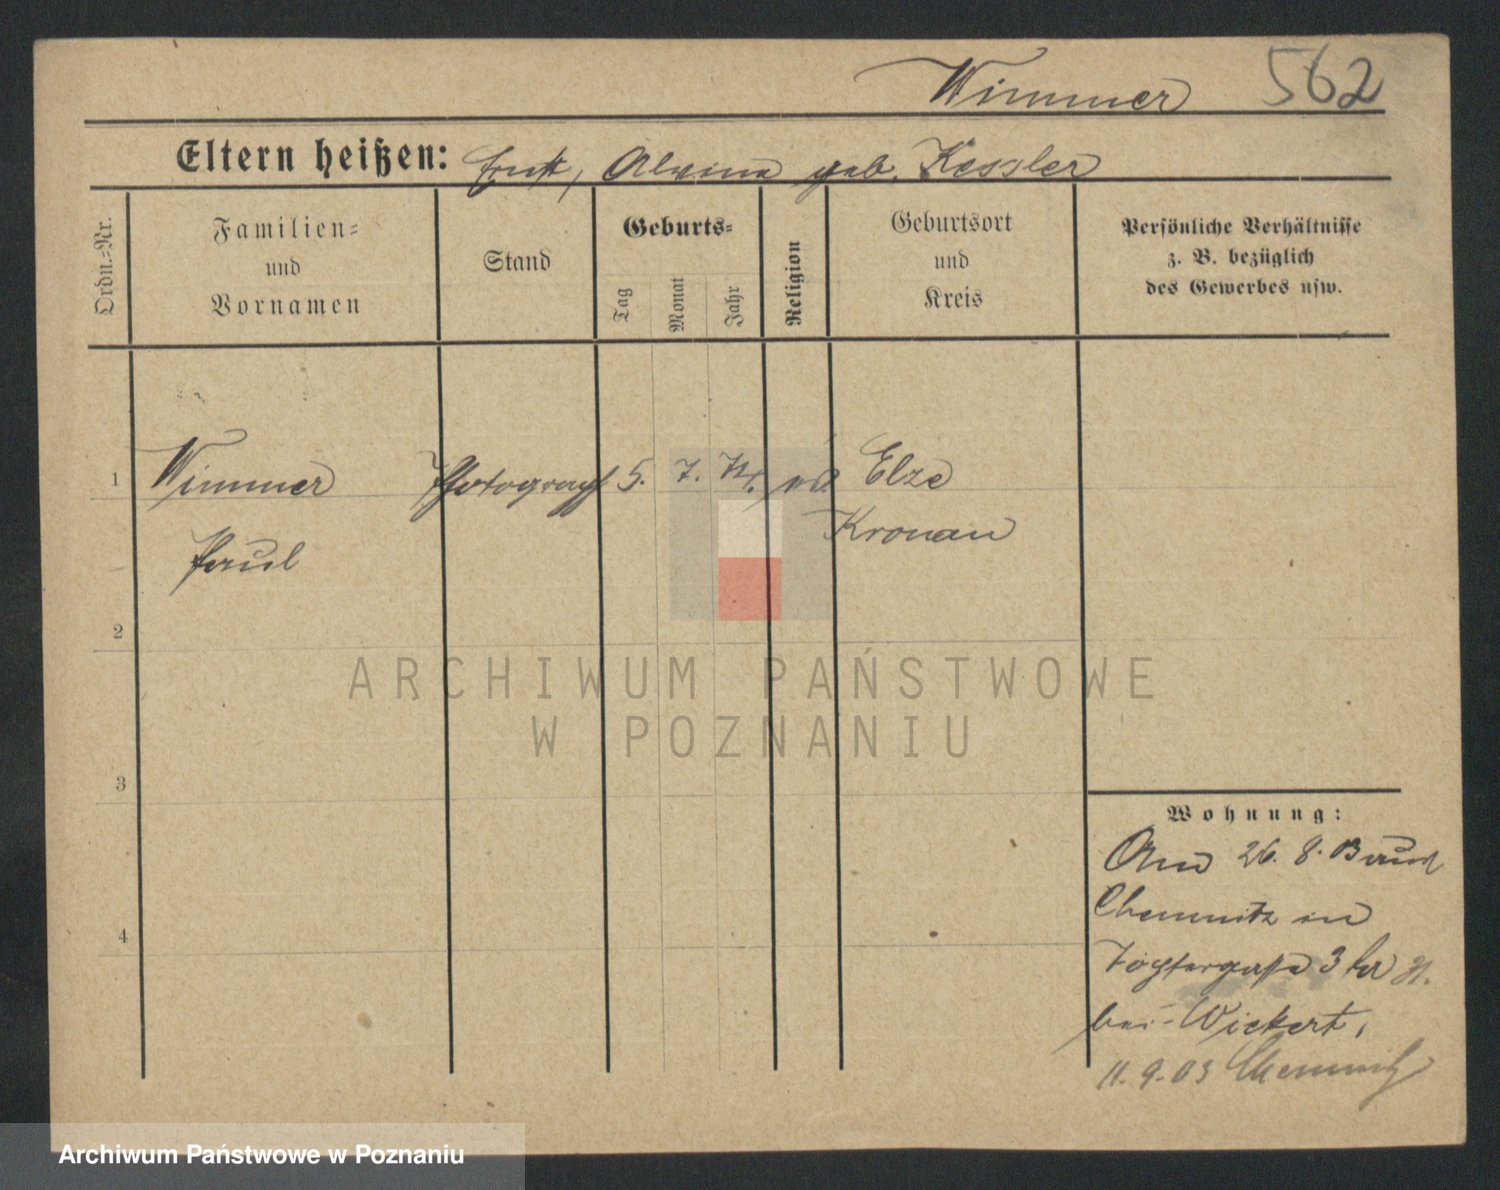 Wimmer 562
Eltern heißen: Ernst, Alwine geb. Kessler
Ordn.-Nr.
Familien-
und
Vornamen
Stand
Geburts-
Tag
Monat
Jahr
Religion
Geburtsort
und
Kreis
Persönliche Verhältnisse
z. B. bezüglich
des Gewerbes usw.
1 Wimmer Photograph 5. 7. 74. Elze
Paul Kronau
2
3
4
Wohnung:
26. 8. 03 aus
Chemnitz in
3
bei Wickert,
11.9.03 Chemnitz
ARCHIWUM PAŃSTWOWE
W POZNANIU
Archiwum Państwowe w Poznaniu